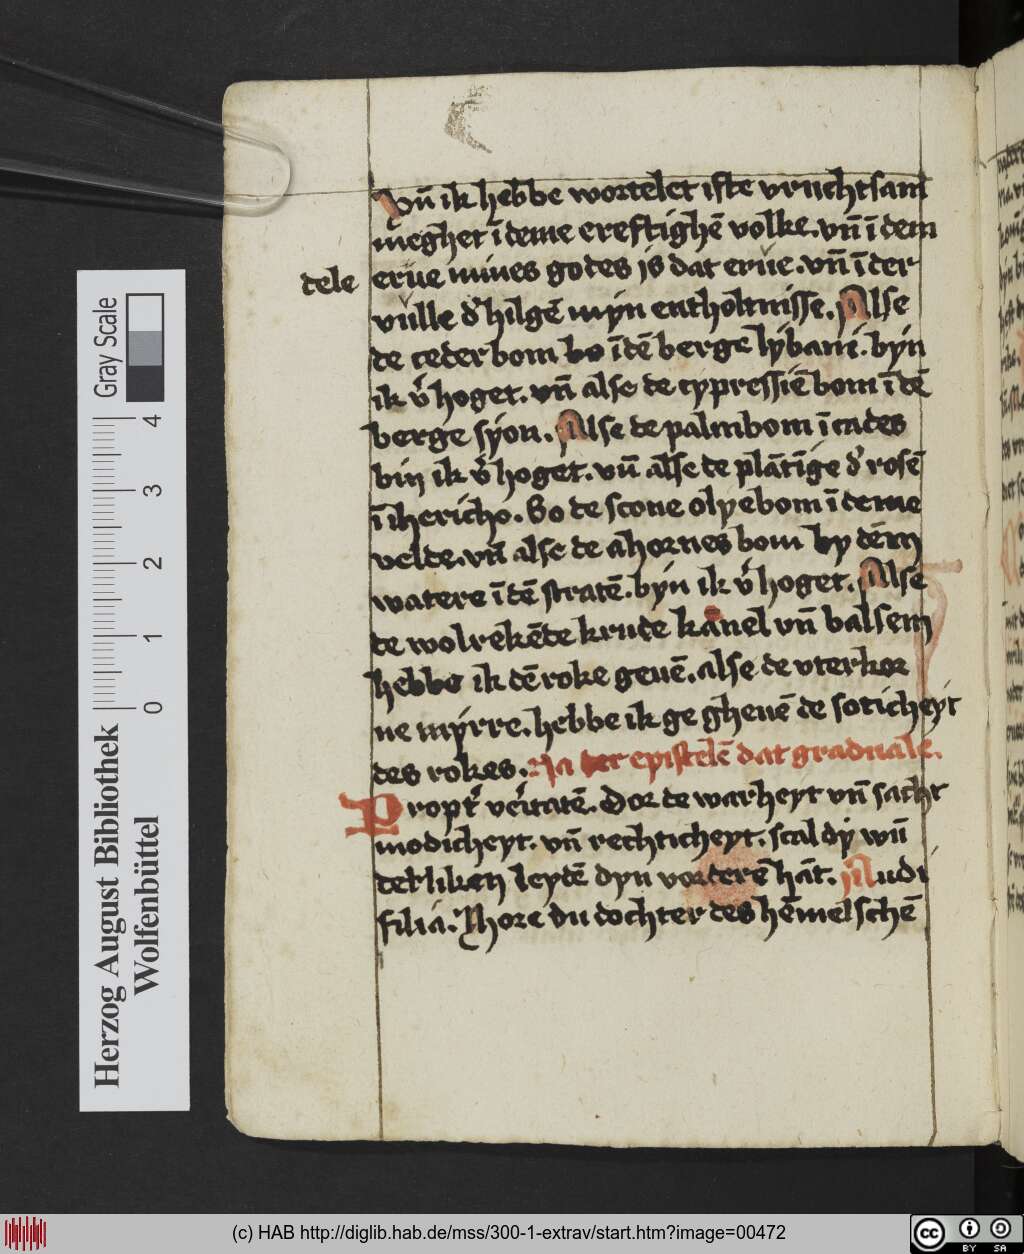 Vn̄ ik hebbe wortelet iste vruchtsam
meghet ī deme ereftighē volke. vn̄ ī dem
tele
erue mines godes is dat erue. vn̄ ī der
vulle d' hilgē myn entholtnisse. Alse
de ceder bom bo ī dē berge lybani. byn
ik v'hoget. vn̄ alse de cypressiē bom ī dē
berge syon. Alse de palmbom ī cades
bin ik v'hoget. vn̄ alse de plātīge d' rosē
ī ihericho. So de scone olyebom ī deme
velde. vn̄ alse de ahornes bom by dēm
watere ī dē stratē. byn ik v'hoget. Alse
de wolrekēde krude kanel vn̄ balsem
hebbe ik dē roke geuē. alse de vterkor
ne myrre. hebbe ik ge gheuē de soticheyt
des rokes. Na der epistelē dat graduale.
Propt' v'itatē. Dor de warheyt vn̄ sacht
modicheyt. vn̄ rechticheyt. scal dy wū
derliken leydē dyn vorderē hāt. Audi
filia. Nhore du dochter des hēmelschē
Gray Scale
0 1 2 3 4
Herzog August Bibliothek
Wolfenbüttel
(c) HAB http://diglib.hab.de/mss/300-1-extrav/start.htm?image=00472
cc BY SA